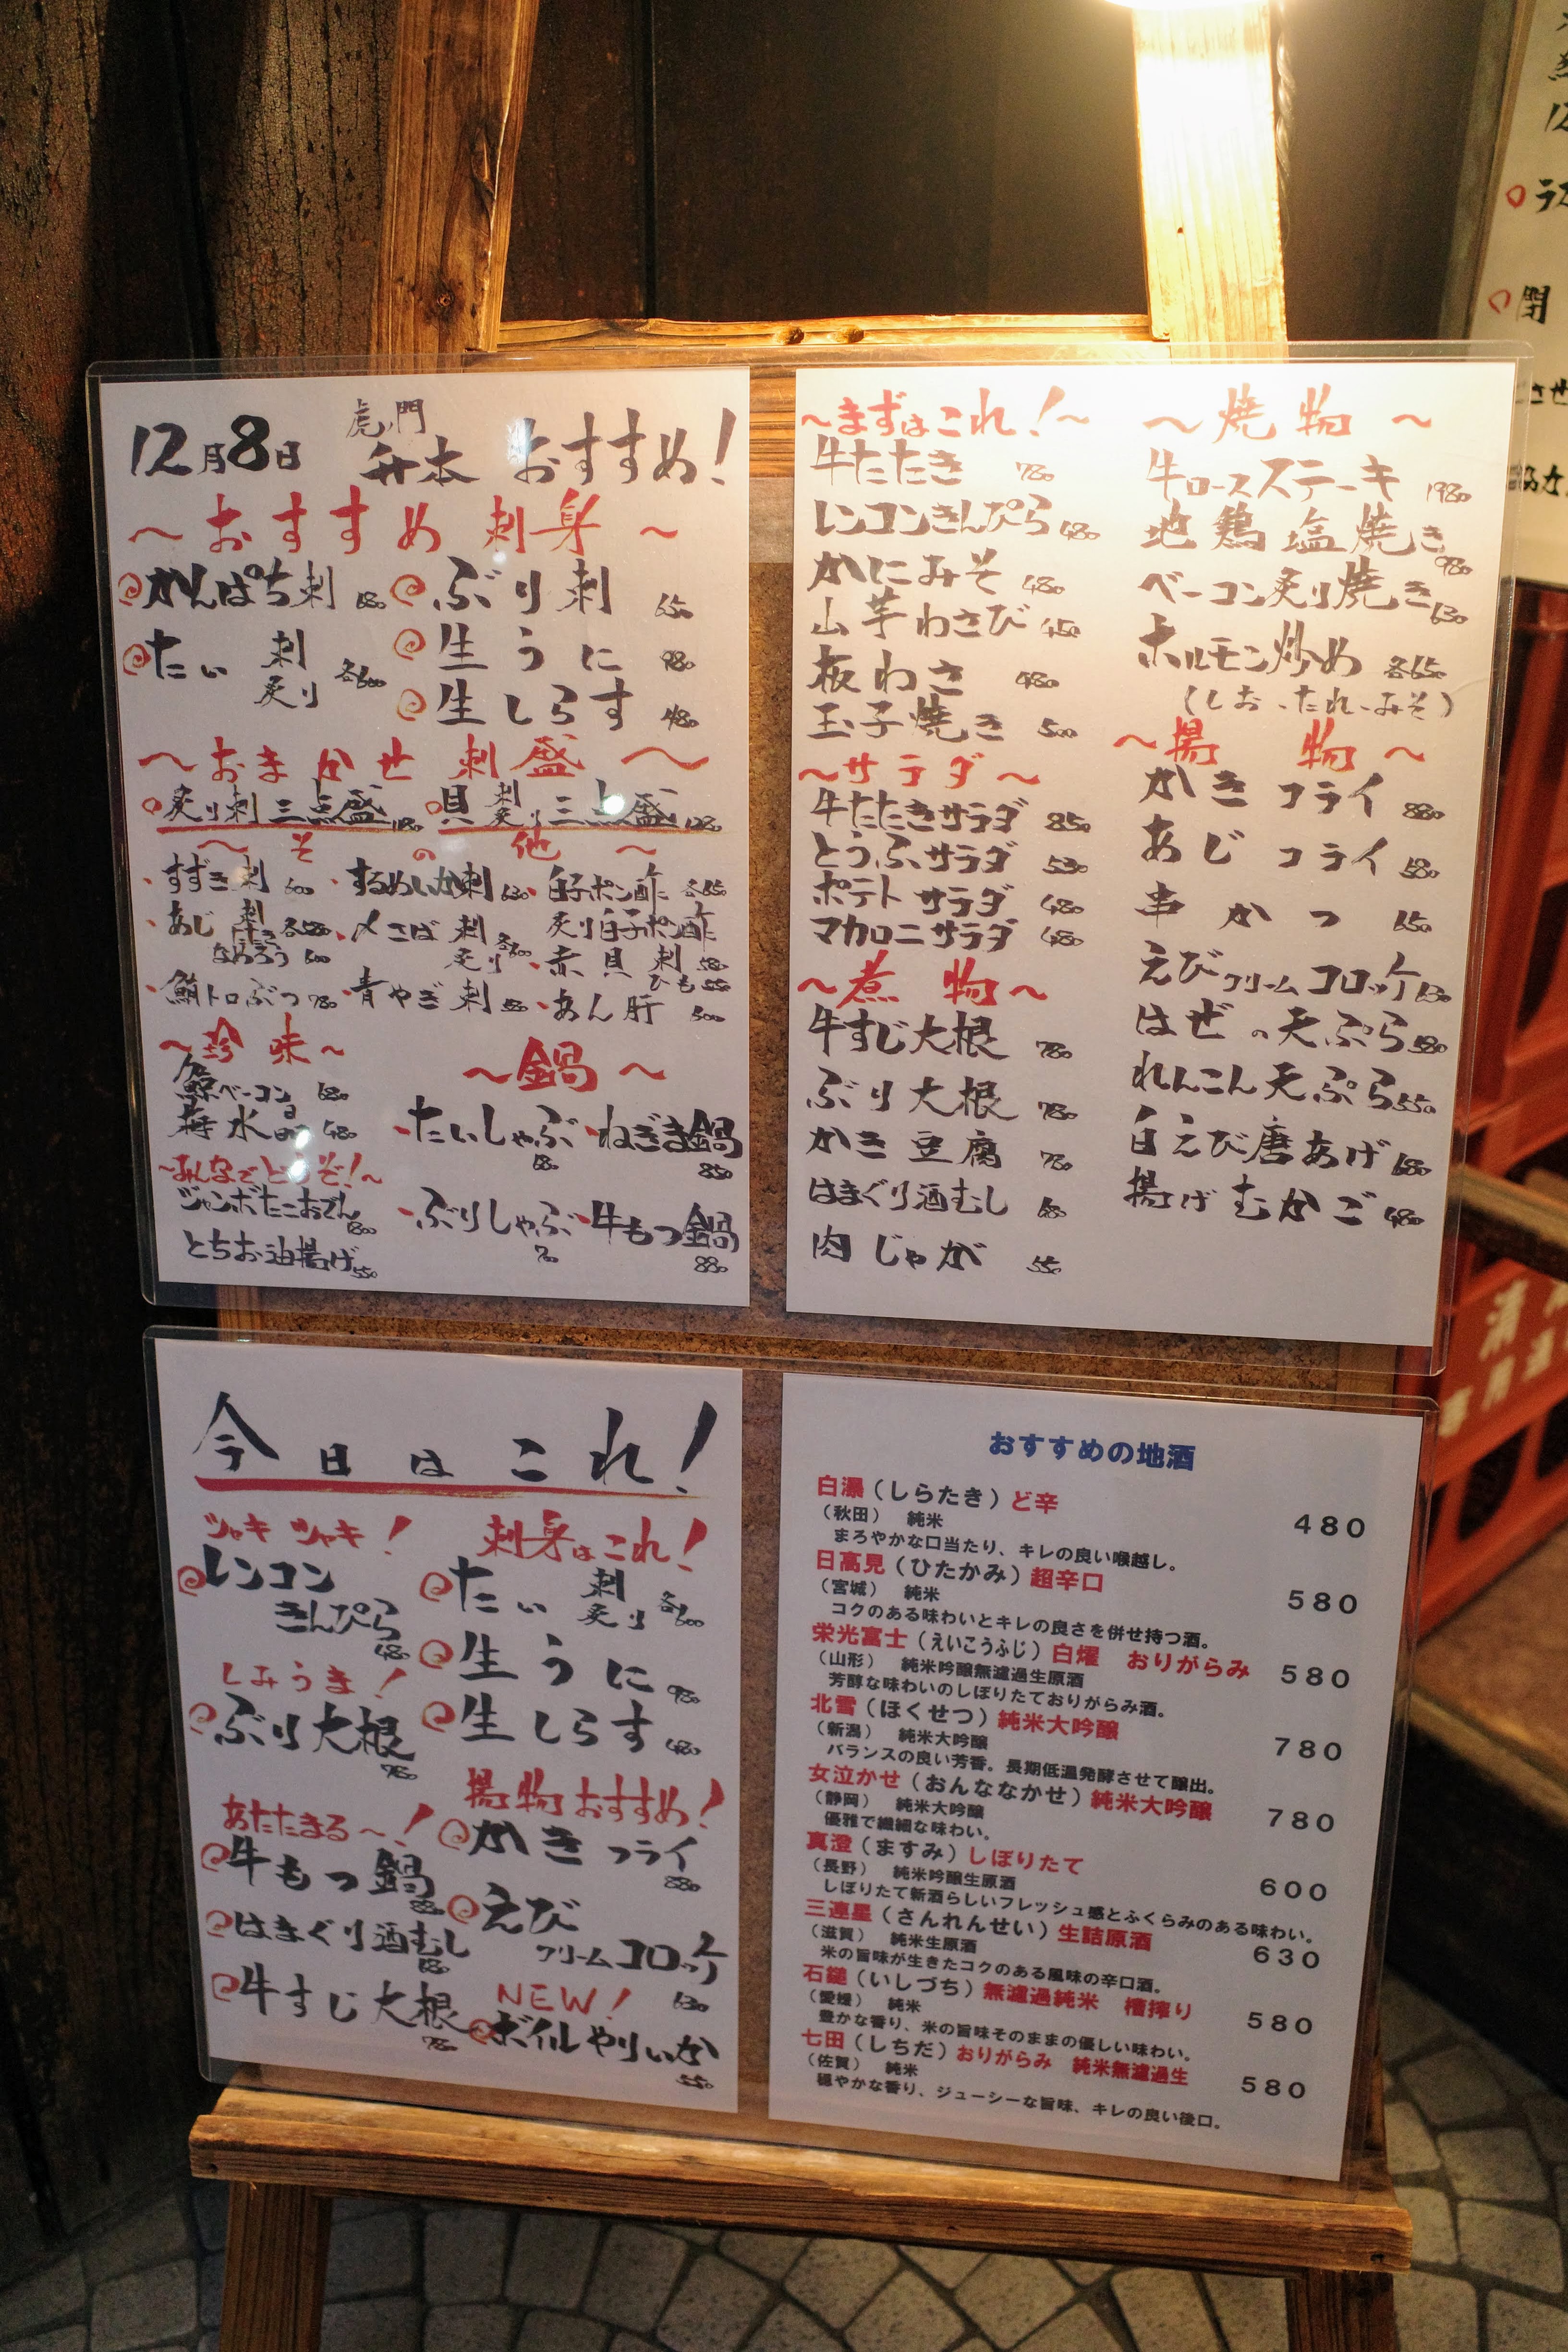 12月8日 虎ノ門 升本 おすすめ!
〜おすすめ刺身〜
かんぱち刺 680
ぶり刺 650
たい 刺 炙り 各600
生うに 980
生しらす 480
〜おまかせ刺盛〜
炙り刺三点盛
貝刺 炙り三点盛
〜その他〜
すずき刺 600
するめいか刺 630
白子ポン酢 各650
あじ 刺 なめろう 600
〆さば 刺 炙り
炙り白子ポン酢
赤貝 刺 580 ひも 550
鮪トロぶつ 780
青やぎ刺
あん肝 500
〜珍味〜
鯨ベーコン 680
莓水
〜みんなでどうぞ!〜
ジャンボたこおでん
とちお油揚げ 550
〜鍋〜
たいしゃぶ
ねぎま鍋 850
ぶりしゃぶ
牛もつ鍋 880
〜まずはこれ!〜
牛たたき 780
レンコンきんぴら 480
かにみそ 480
山芋わさび 450
板わさ 480
玉子焼き 500
〜サラダ〜
牛たたきサラダ 850
とうふサラダ 530
ポテトサラダ 480
マカロニサラダ 480
〜煮物〜
牛すじ大根 780
ぶり大根 780
かき豆腐 780
はまぐり酒むし
肉じゃが 550
〜焼物〜
牛ロースステーキ 1980
地鶏塩焼き 980
ベーコン炙り焼き 630
ホルモン炒め 各650
(しお、たれ、みそ)
〜揚物〜
かきフライ 880
あじフライ 580
串かつ 650
えびクリームコロッケ 630
はぜの天ぷら 580
れんこん天ぷら 550
白えび唐あげ 680
揚げむかご 480
今日はこれ!
シャキシャキ!
レンコンきんぴら 480
しみうま!
ぶり大根 780
あたたまる〜!
牛もつ鍋 880
はまぐり酒むし
牛すじ大根 780
刺身はこれ!
たい 刺 炙り 各600
生うに 980
生しらす 480
揚物おすすめ!
かきフライ 880
えびクリームコロッケ 630
NEW!
ボイルやりいか 550
おすすめの地酒
白瀑(しらたき)ど辛 480
(秋田) 純米
まろやかな口当たり、キレの良い喉越し。
日高見(ひたかみ)超辛口 580
(宮城) 純米
コクのある味わいとキレの良さを併せ持つ酒。
栄光富士(えいこうふじ)白燿 おりがらみ 580
(山形) 純米吟醸無濾過生原酒
芳醇な味わいのしぼりたておりがらみ酒。
北雪(ほくせつ)純米大吟醸 780
(新潟) 純米大吟醸
バランスの良い芳香。長期低温発酵させて醸出。
女泣かせ(おんななかせ)純米大吟醸 780
(静岡) 純米大吟醸
優雅で繊細な味わい。
真澄(ますみ)しぼりたて 600
(長野) 純米吟醸生原酒
しぼりたて新酒らしいフレッシュ感とふくらみのある味わい。
三連星(さんれんせい)生詰原酒 630
(滋賀) 純米生原酒
米の旨味が生きたコクのある風味の辛口酒。
石鎚(いしづち)無濾過純米 槽搾り 580
(愛媛) 純米
豊かな香り、米の旨味そのままの優しい味わい。
七田(しちだ)おりがらみ 純米無濾過生 580
(佐賀) 純米
穏やかな香り、ジューシーな旨味、キレの良い後口。